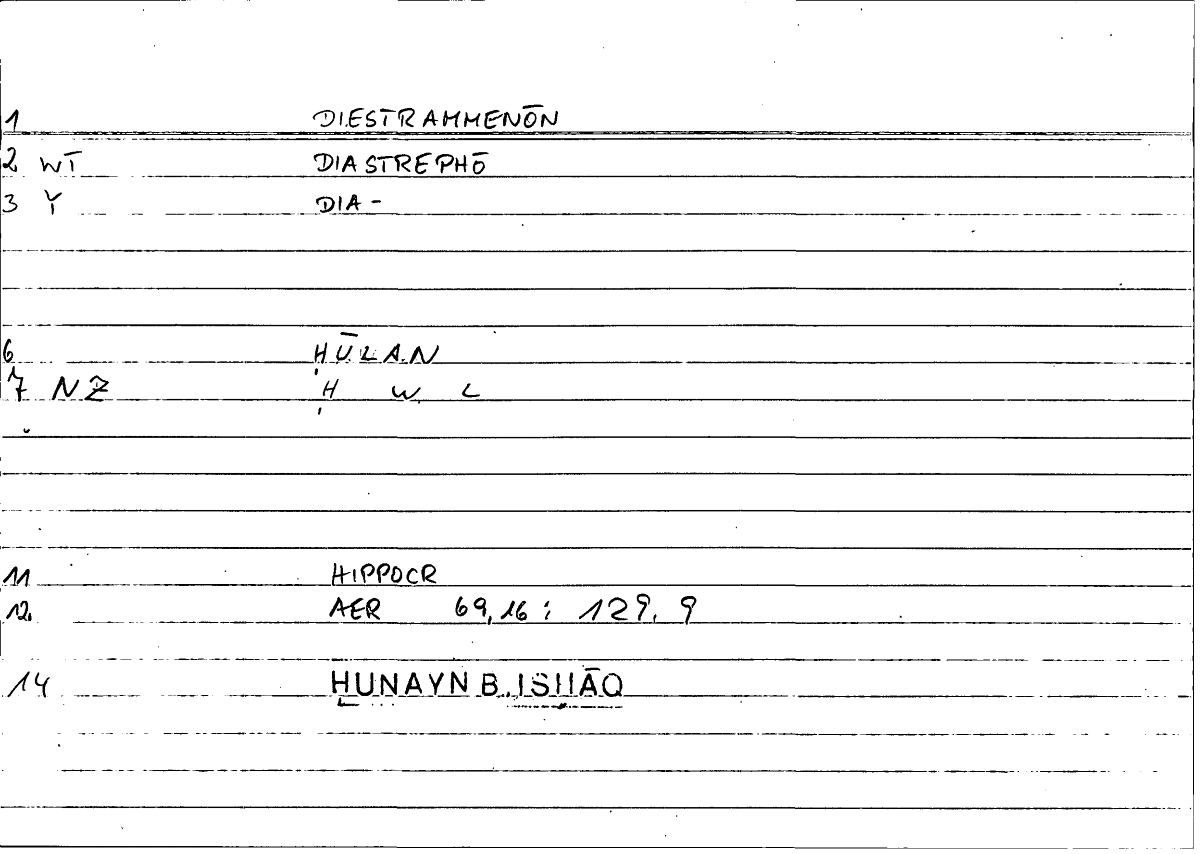 1 DIESTRAMMENŌN
2 WT DIASTREPHŌ
3 Y DIA-
6 ḤŪLAN
7 NZ Ḥ W L
11 HIPPOCR
12 AER 69,16 : 129,9
14 ḤUNAYN B. ISḤĀQ